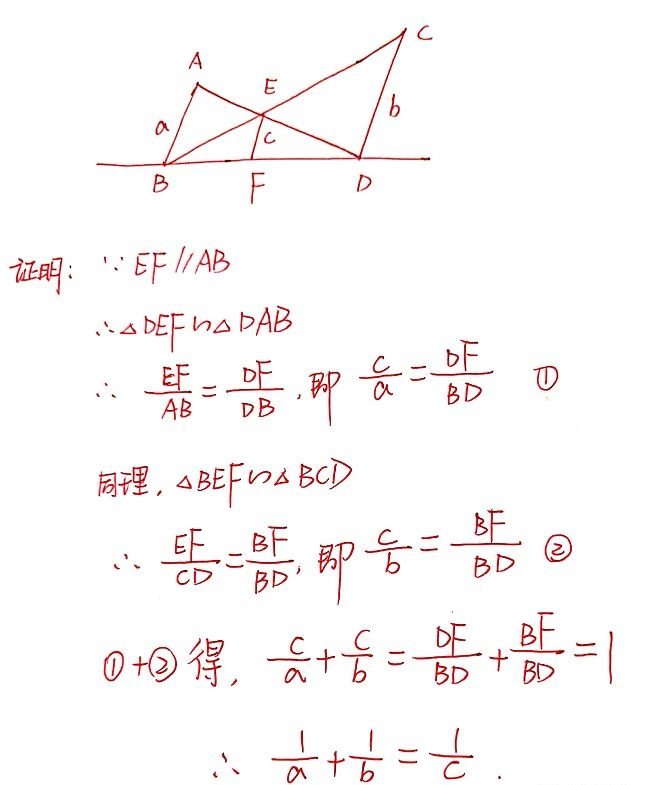 A
E
C
a
c
b
B
F
D
证明: ∵ EF∥AB
∴△DEF∽△DAB
∴ EF/AB = DF/DB, 即 c/a = DF/BD ①
同理, △BEF∽△BCD
∴ EF/CD = BF/BD, 即 c/b = BF/BD ②
①+②得, c/a + c/b = DF/BD + BF/BD = 1
∴ 1/a + 1/b = 1/c.